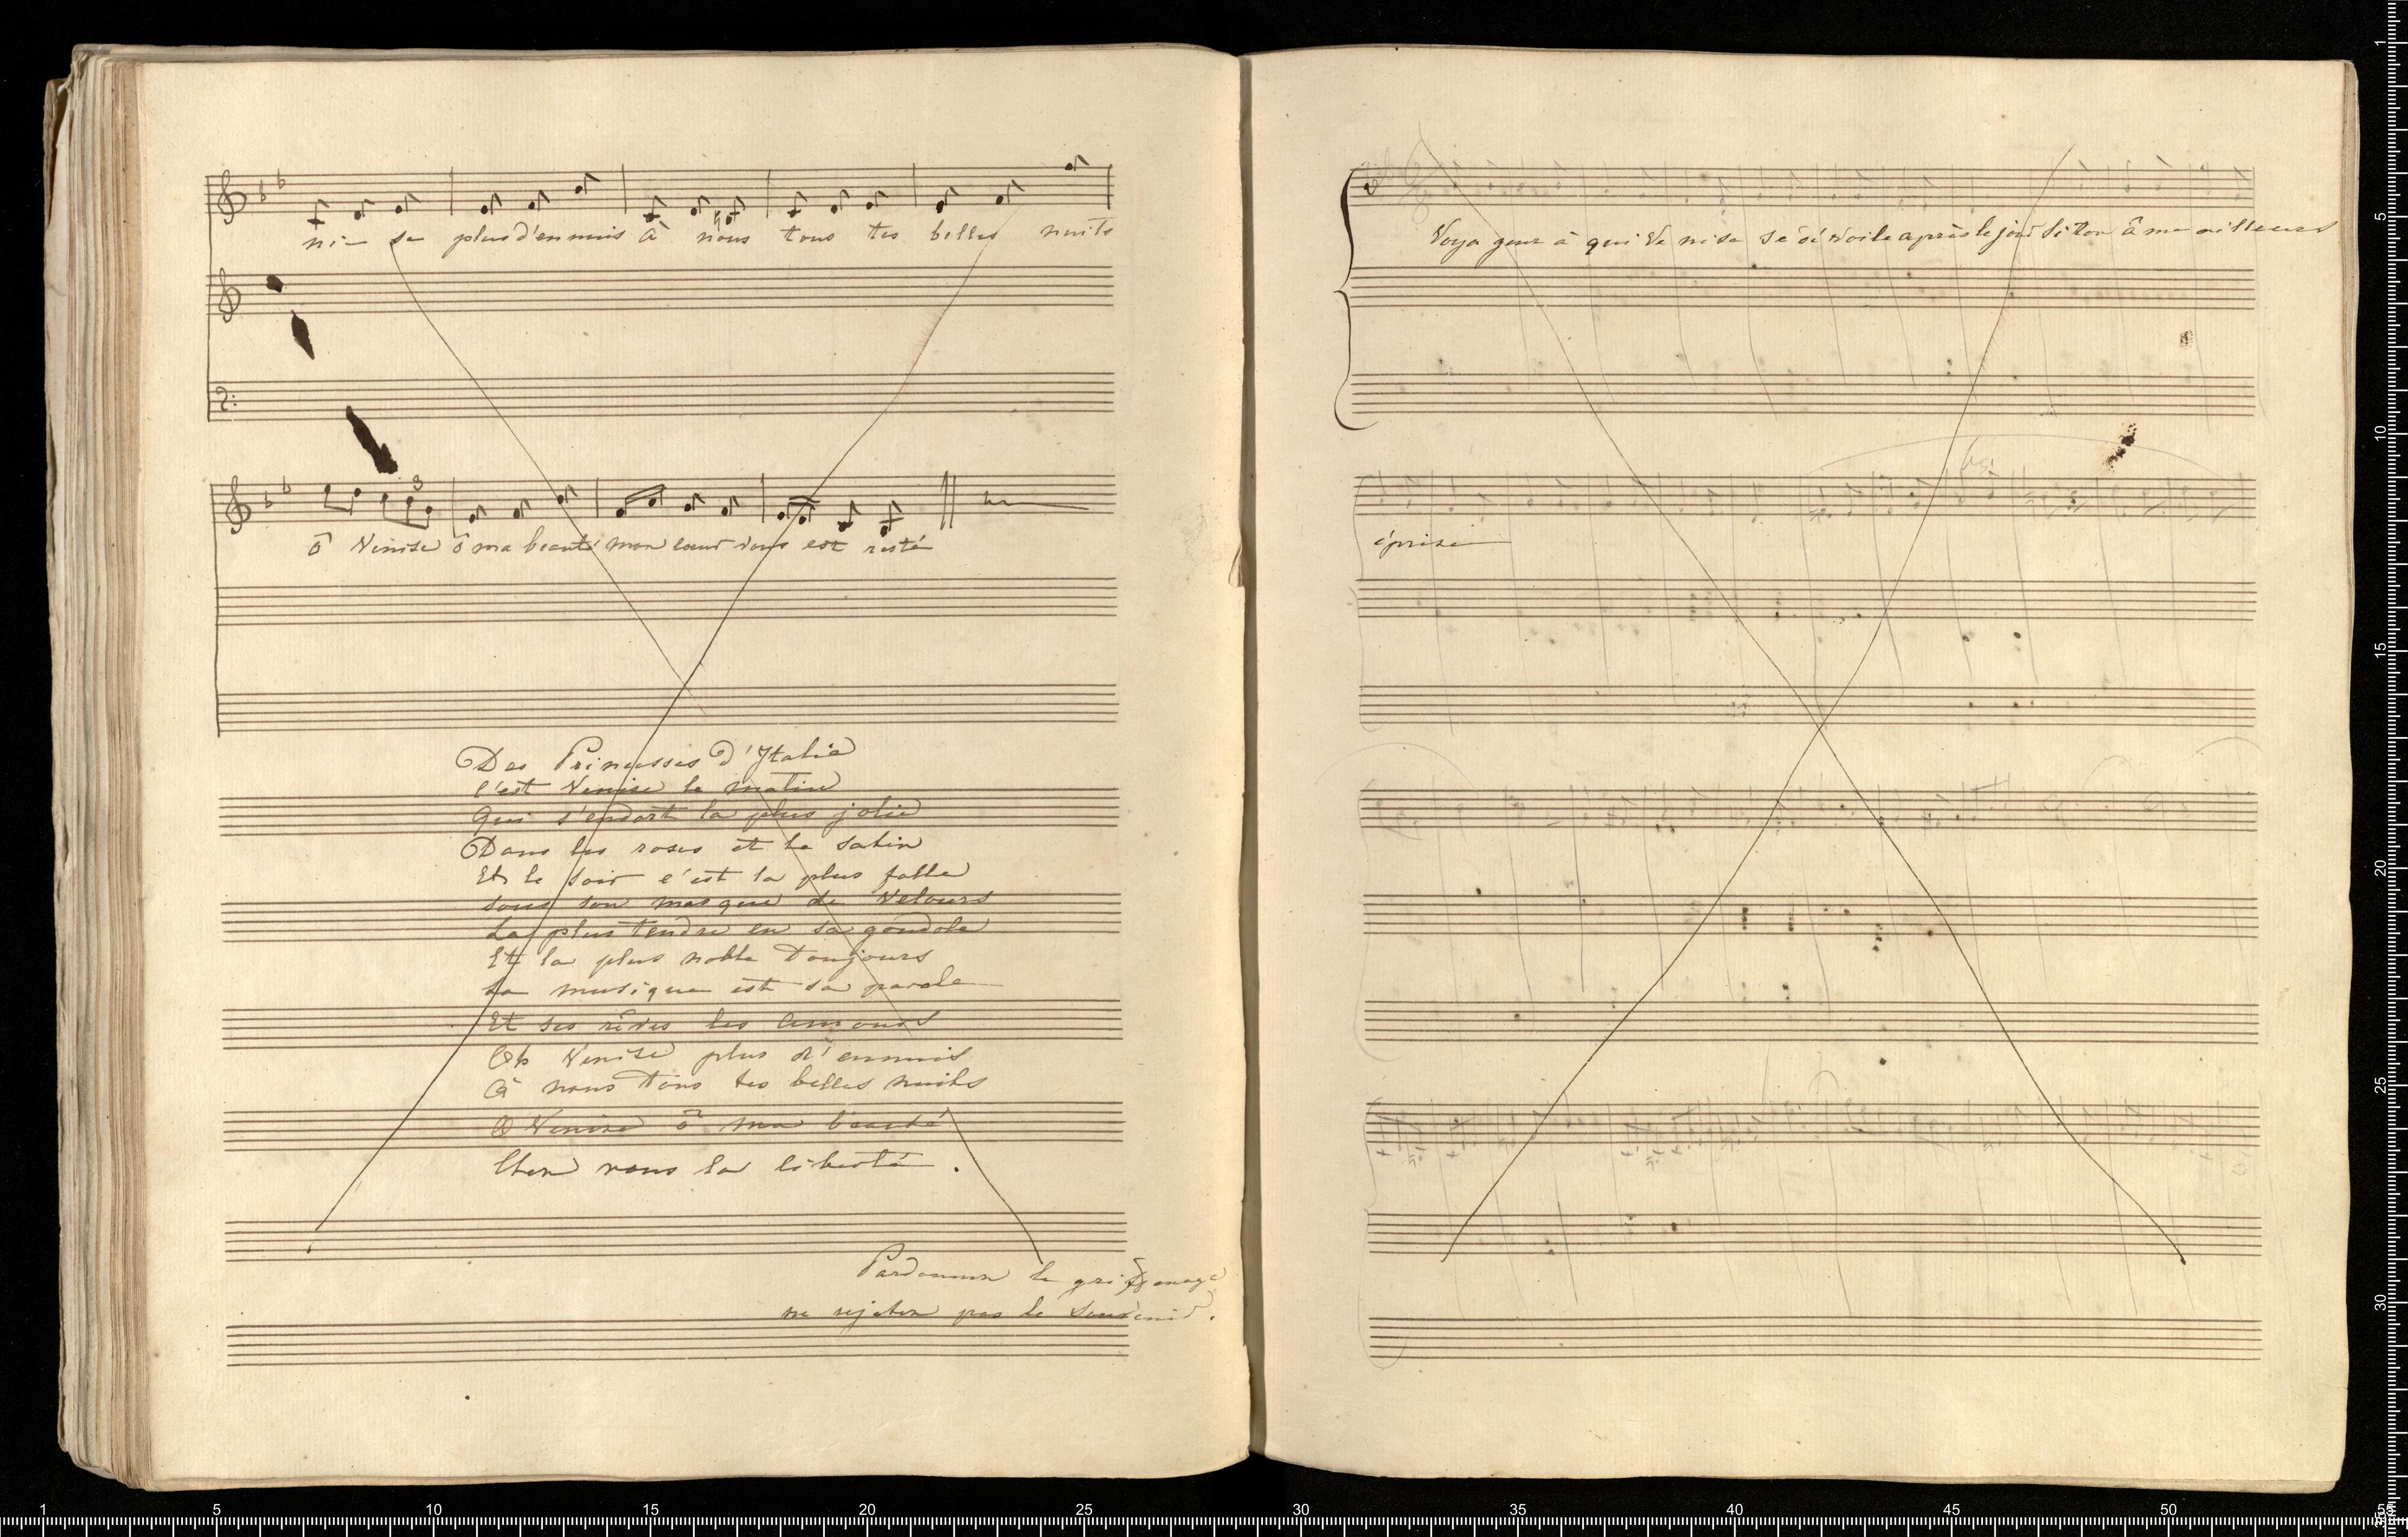 ni - se plus d'ennuis à nous tous tes belles nuits
3
ô Venise ô ma beauté mon cœur vous est resté
Des Princesses d'Italie
C'est Venise le matin
Qui s'endort la plus jolie
Dans les roses et le satin
Et le soir c'est la plus folle
sous son masque de Velours
La plus tendre en sa gondole
Et la plus noble Toujours
La musique est sa parole
Et ses rêves les amours
Oh Venise plus d'ennuis
à nous Tous tes belles nuits
O Venise ô ma beauté
Chez vous la liberté .
Pardonnez le griffonage
ne rejetez pas le Souvenir.
Voya geur à qui Ve nise se dé voile après le jour Si ton â me ailleurs
éprise
1 5 10 15 20 25 30 35 40 45 50 55
1
5
10
15
20
25
30
35